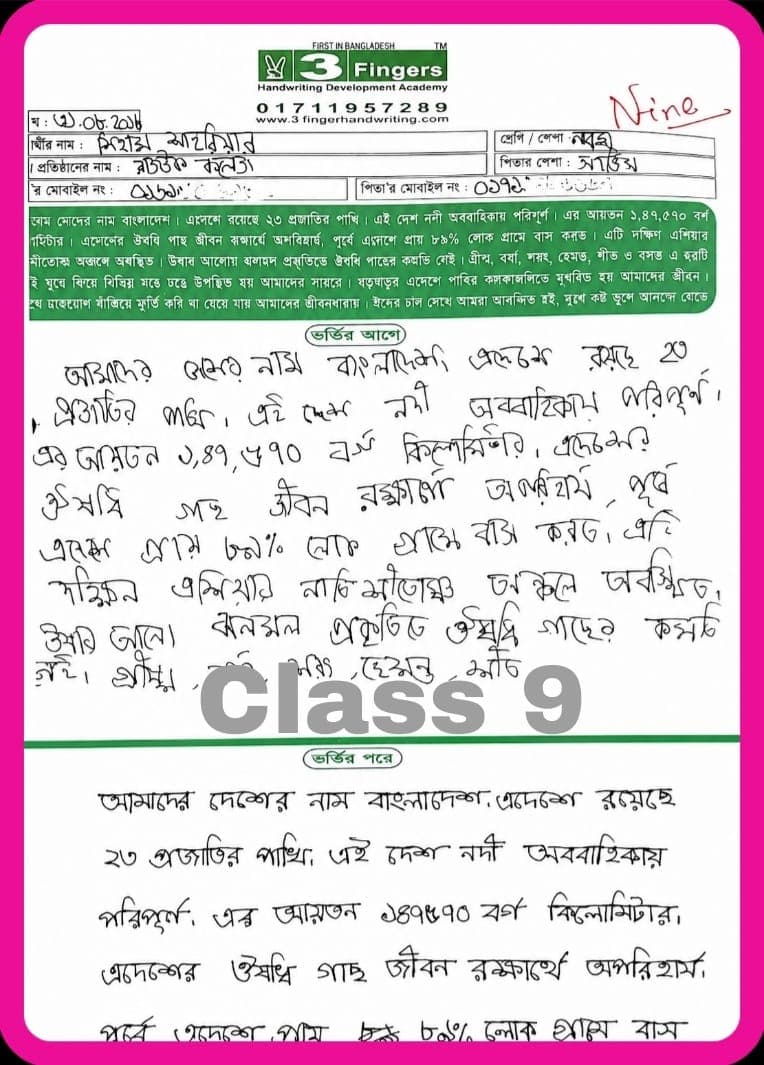 FIRST IN BANGLADESH TM
3 Fingers
Handwriting Development Academy
01711957289
www.3fingerhandwriting.com
Nine
শ্রেণি / পেশা : নবম
প্রতিষ্ঠানের নাম : রাজউক কলেজ
পিতার পেশা :
র মোবাইল নং :
পিতা'র মোবাইল নং :
মোদের নাম বাংলাদেশ। এদেশে রয়েছে ২৩ প্রজাতির পাখি। এই দেশ নদী অববাহিকায় পরিপূর্ণ। এর আয়তন ১,৪৭,৫৭০ বর্গ
এদেশের ঔষধি গাছ জীবন রক্ষার্থে অপরিহার্য, পূর্বে এদেশে প্রায় ৮৯% লোক গ্রামে বাস করত। এটি দক্ষিণ এশিয়ার
অঞ্চলে অবস্থিত। উষার আলোয় ঝলমল প্রকৃতিতে ঔষধি গাছের কমতি নেই। গ্রীষ্ম, বর্ষা, শরৎ, হেমন্ত, শীত ও বসন্ত এ ছয়টি
ঘুরে ফিরে বিচিত্র মতে ঢঙে উপস্থিত হয় আমাদের সামনে। ষড়ঋতুর এদেশে পাখির কলকাকলিতে মুখরিত হয় আমাদের জীবন।
ফুর্তি করি যা বেয়ে যায় আমাদের জীবনধারায়। ঈদের চাঁদ দেখে আমরা আনন্দিত হই, দুঃখ কষ্ট ভুলে আনন্দে
ভর্তির আগে
আমাদের দেশের নাম বাংলাদেশ, এদেশে রয়েছে ২৩
প্রজাতির পাখি। এই দেশ নদী অববাহিকায় পরিপূর্ণ।
এর আয়তন ১,৪৭,৫৭০ বর্গ কিলোমিটার। এদেশের
ঔষধি গাছ জীবন রক্ষার্থে অপরিহার্য, পূর্বে
এদেশে প্রায় ৮৯% লোক গ্রামে বাস করত। এটি
দক্ষিন এশিয়ার নাতিশীতোষ্ণ অঞ্চলে অবস্থিত,
উষার আলো ঝলমল প্রকৃতিতে ঔষধি গাছের কমতি
নেই। গ্রীষ্ম, শরৎ, হেমন্ত, শীত
Class 9
ভর্তির পরে
আমাদের দেশের নাম বাংলাদেশ, এদেশে রয়েছে
২৩ প্রজাতির পাখি। এই দেশ নদী অববাহিকায়
পরিপূর্ণ। এর আয়তন ১৪৭৫৭০ বর্গ কিলোমিটার।
এদেশের ঔষধি গাছ জীবন রক্ষার্থে অপরিহার্য।
পূর্বে এদেশে প্রায় ৮৯% লোক গ্রামে বাস